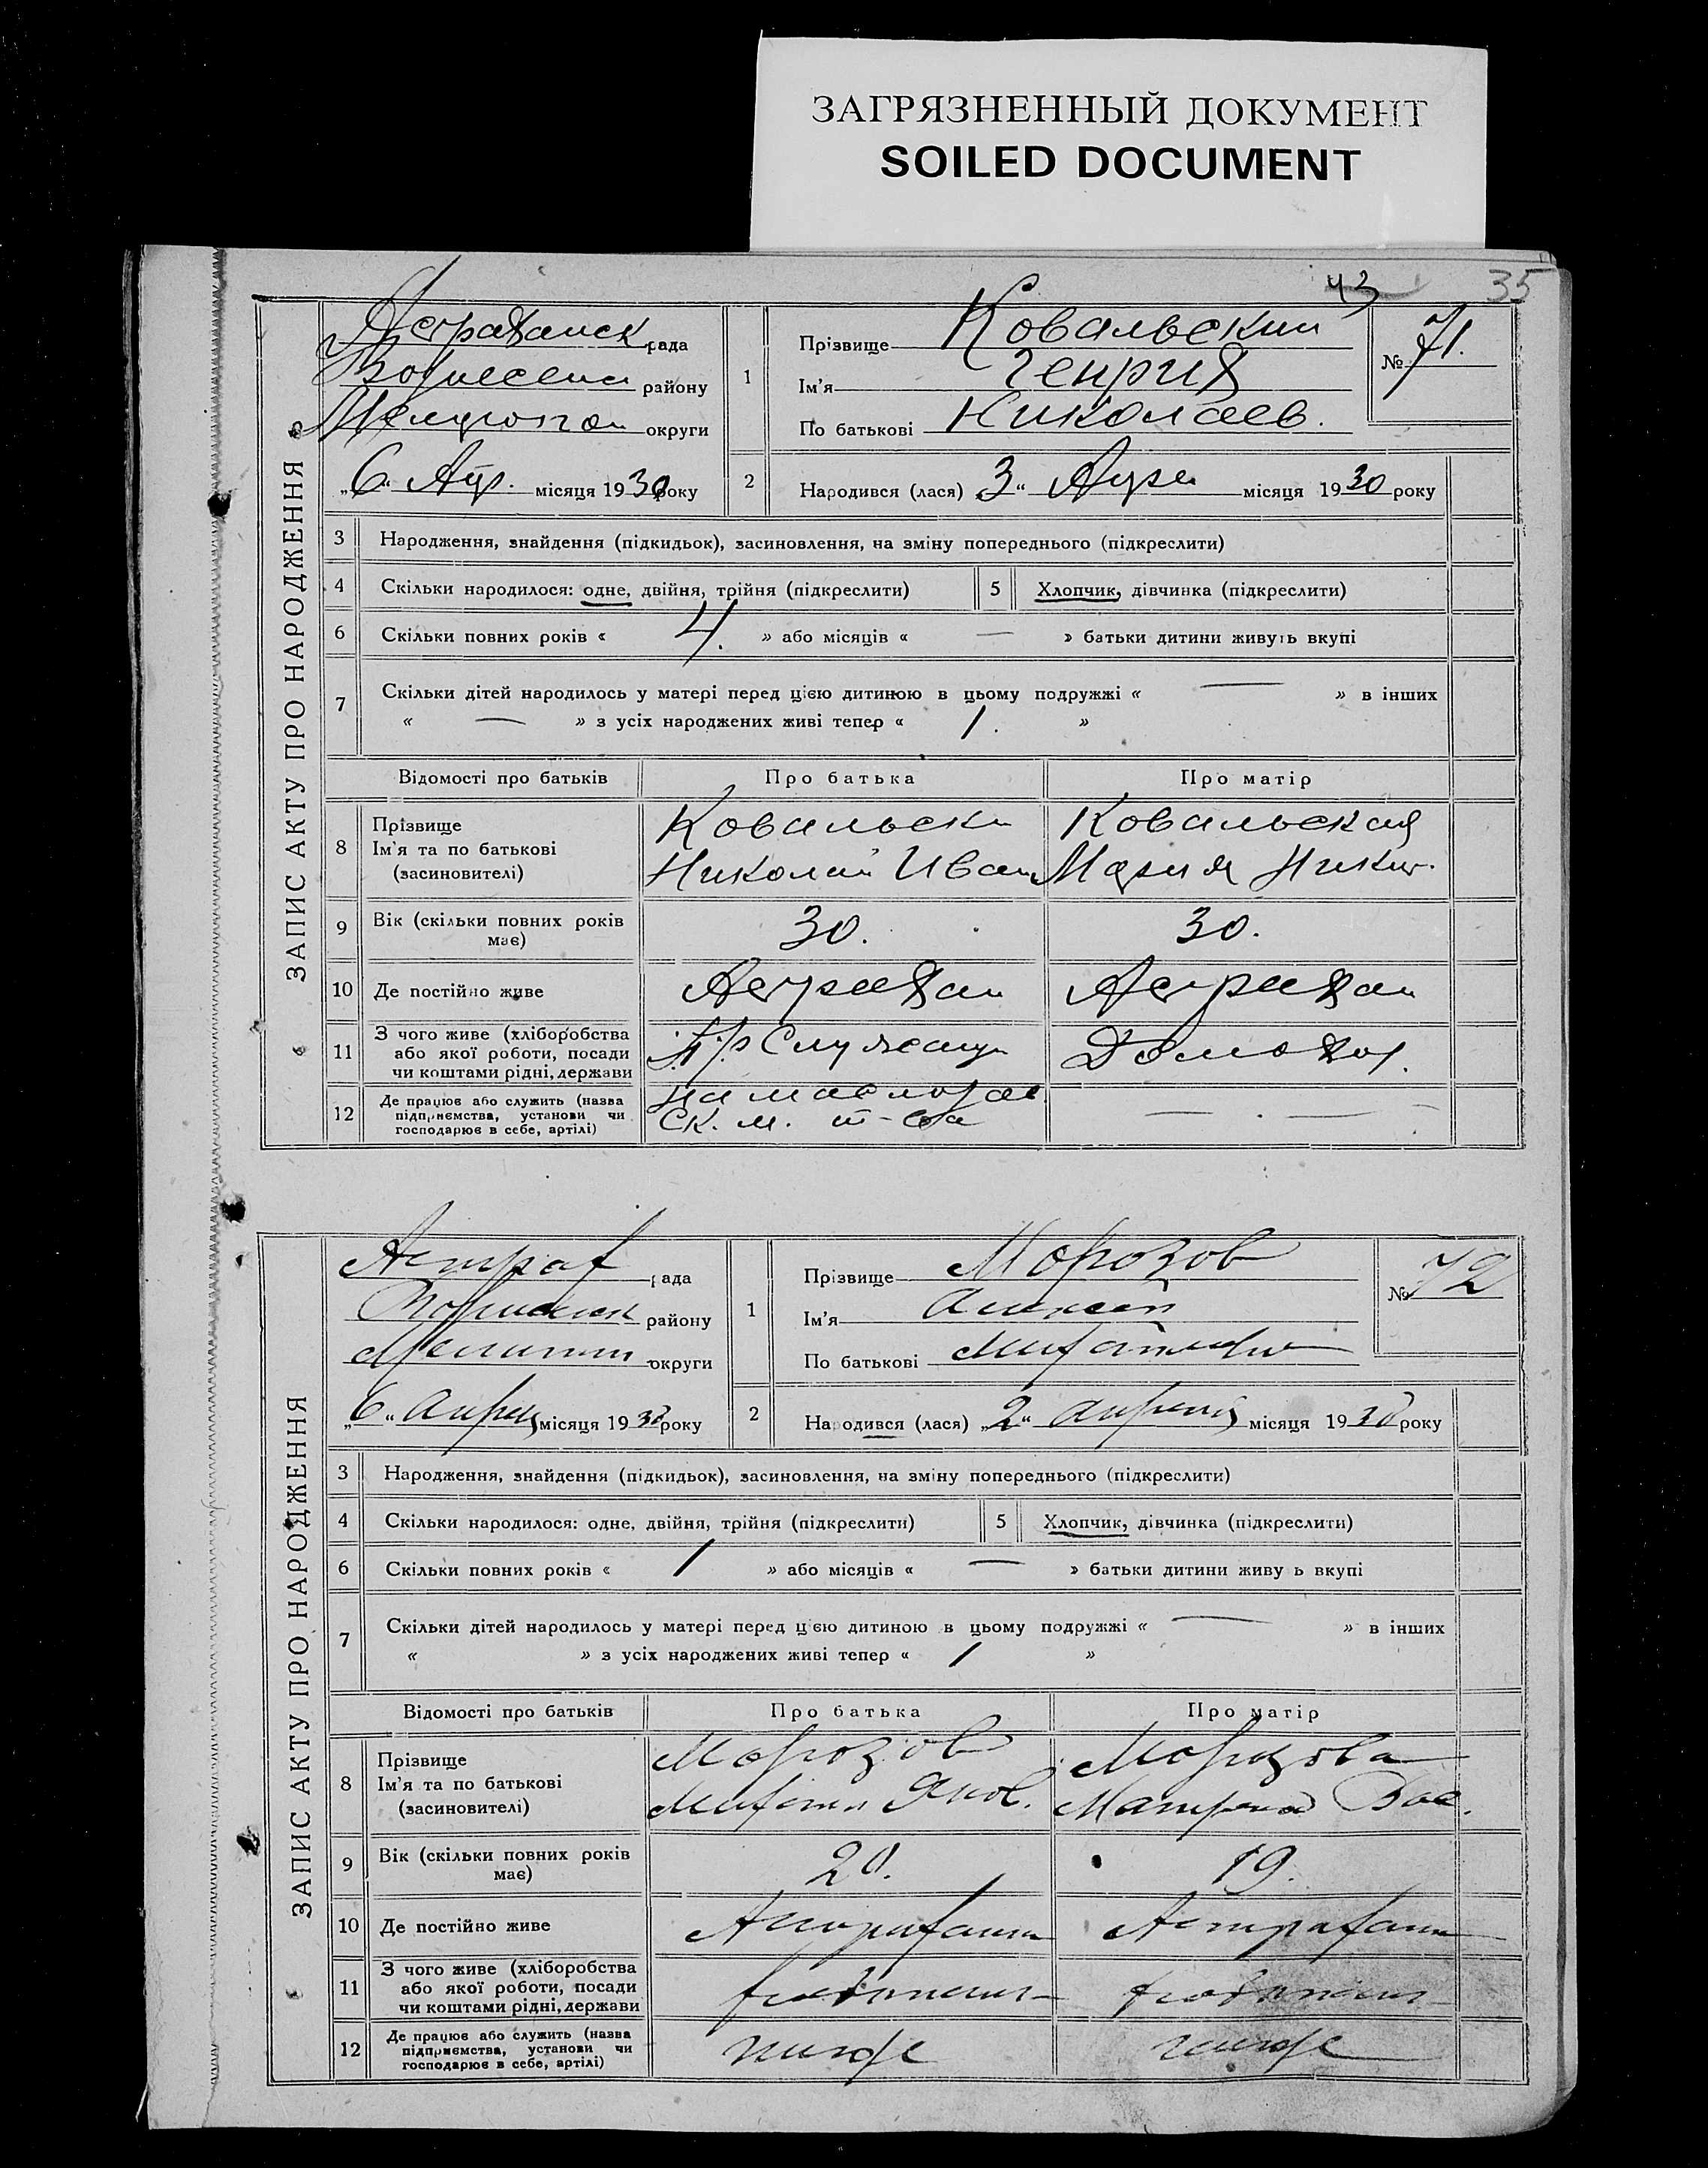 ЗАГРЯЗНЕННЫЙ ДОКУМЕНТ
SOILED DOCUMENT
43 35
ЗАПИС АКТУ ПРО НАРОДЖЕННЯ
Астраханск рада
району
округи
„6“ Апр. місяця 1930 року
1
Прізвище Ковальский
Ім'я Генрих
По батькові Николаев.
№ 71.
2 Народився (лася) „3“ Апре місяця 1930 року
3 Народження, знайдення (підкидьок), засиновлення, на зміну попереднього (підкреслити)
4 Скільки народилося: одне, двійня, трійня (підкреслити) 5 Хлопчик, дівчинка (підкреслити)
6 Скільки повних років « 4. » або місяців « — » батьки дитини живуть вкупі
7 Скільки дітей народилось у матері перед цією дитиною в цьому подружжі « — » в інших
« — » з усіх народжених живі тепер « 1. »
Відомості про батьків Про батька Про матір
8 Прізвище
Ім'я та по батькові
(засновителі)
Ковальски
Николай Иван
Ковальская
Мария Никит.
9 Вік (скільки повних років
має) 30. 30.
10 Де постійно живе Астрахан Астрахан
11 З чого живе (хліборобства
або якої роботи, посади
чи коштами рідні, держави
Служащи
Домохоз.
12 Де працює або служить (назва
підприємства, установи чи
господарює в себе, артілі)
на
ск. м. т-ва
— . —
ЗАПИС АКТУ ПРО НАРОДЖЕННЯ
Астрах рада
району
округи
„6“ апреля місяця 1930 року
1
Прізвище Морозов
Ім'я Алексей
По батькові Михайлович
№ 72
2 Народився (лася) „2“ апреля місяця 1930 року
3 Народження, знайдення (підкидьок), засиновлення, на зміну попереднього (підкреслити)
4 Скільки народилося: одне, двійня, трійня (підкреслити) 5 Хлопчик, дівчинка (підкреслити)
6 Скільки повних років « 1 » або місяців « — » батьки дитини живуь вкупі
7 Скільки дітей народилось у матері перед цією дитиною в цьому подружжі « — » в інших
« » з усіх народжених живі тепер « 1 »
Відомості про батьків Про батька Про матір
8 Прізвище
Ім'я та по батькові
(засиновителі)
Морозов
Михаил Яков.
Морозова
Матрена Вас.
9 Вік (скільки повних років
має) 20. 19.
10 Де постійно живе Астраханка Астраханка
11 З чого живе (хліборобства
або якої роботи, посади
чи коштами рідні, держави
12 Де працює або служить (назва
підприємства, установи чи
господарює в себе, артілі)